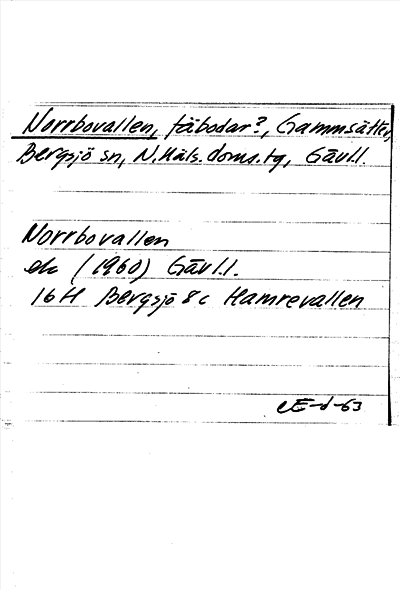 Norrbovallen, fäbodar?, Gammsätter,
Bergsjö sn, N.Häls.doms.tg, Gävl.l.
Norrbovallen
ek (1960) Gävl.l.
16H Bergsjö 8c Hamrevallen
CE-d-63